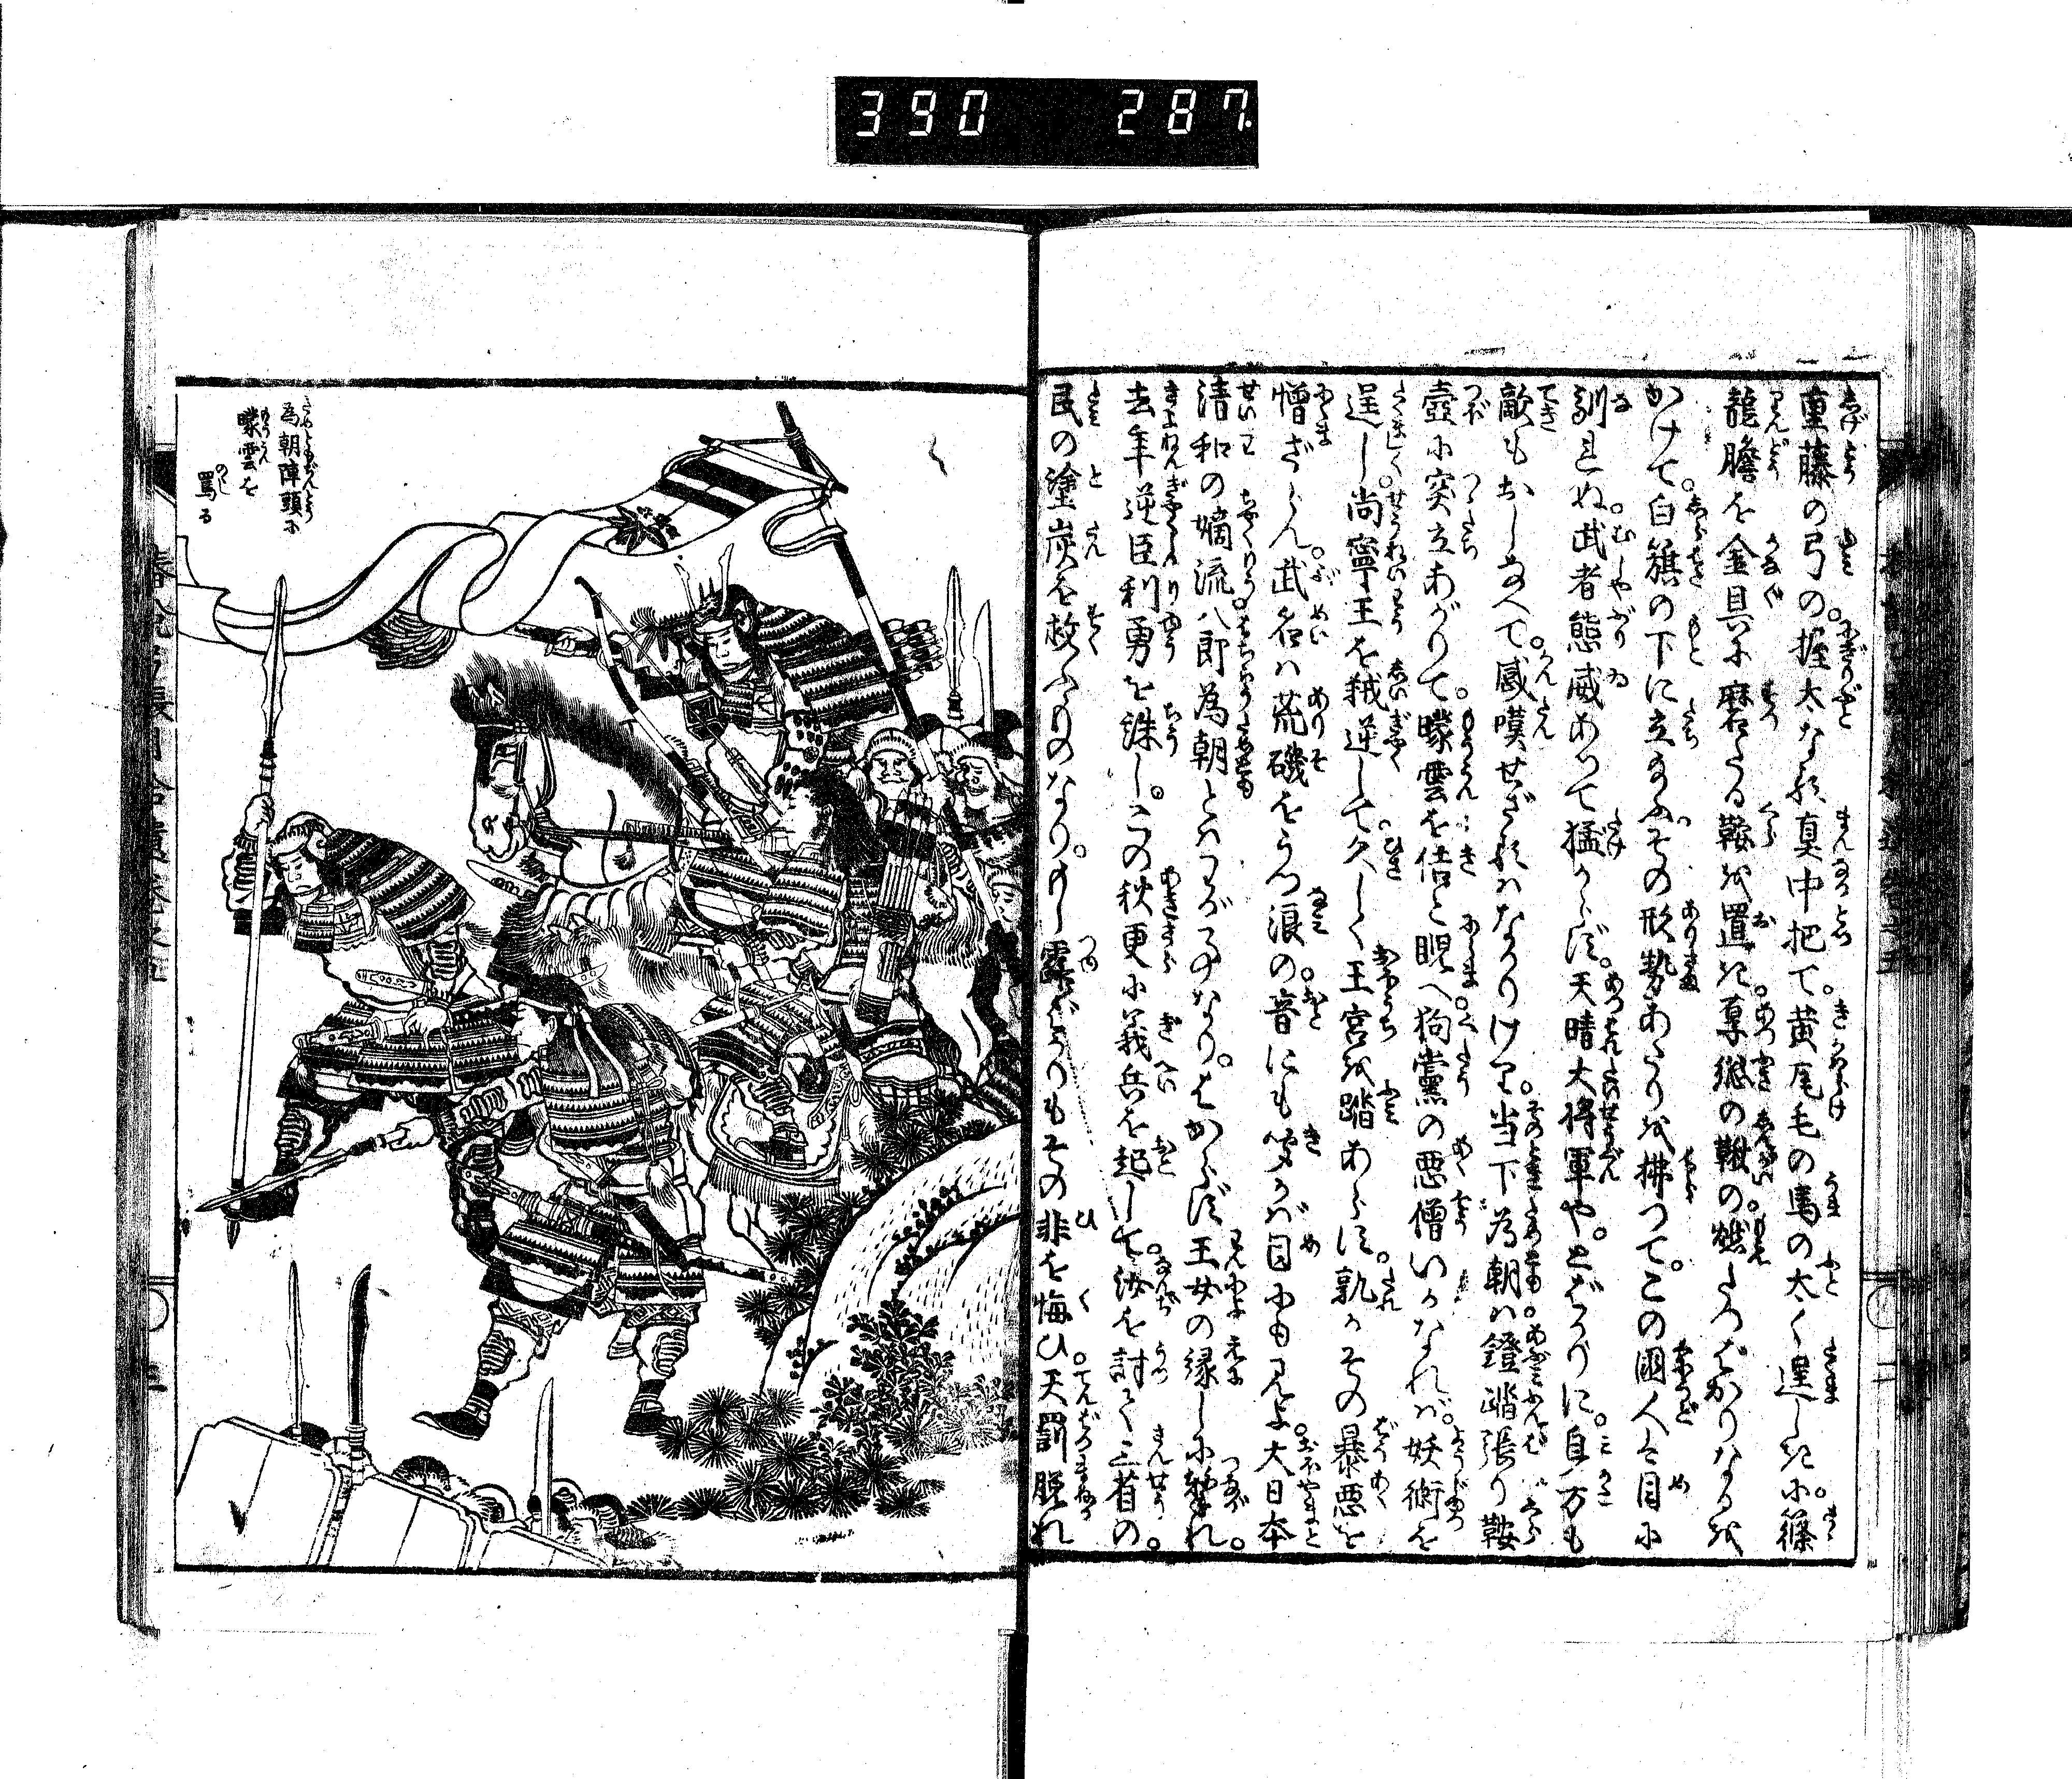 390 287
重藤の弓の。握太なる真中把て。黄尾毛の馬の太く逞しきに。篠
龍膽を金具に磨たる鞍を置き。厚総の鞦の燃たつばかりなるを
かけて。白籏の下に立給ふその形勢あたりを拂つて。この國人は目に
馴れぬ。武者態威あつて猛からず。天晴大将軍や。とばかりに。自方も
敵もおしなべて。感嘆せざるはなかりけり。当下為朝は。鐙踏張り鞍
壺に突立あがりて。曚雲を佶と睨へ。狗黨の悪僧いかなれば。妖術を
逞し。尚寧王を弑逆して。久しく王宮を踏あらし。孰かその暴悪を
憎ざらん。武名は荒磯をうつ浪の。音にも聞かば目にも見よ。大日本
清和の嫡流。八郎為朝とはわが事なり。はからず王女の縁しに繋れ。
去年逆臣利勇を誅し。この秋更に義兵を起して。汝を討て三省の。
民の塗炭を救ふものなり。もし露ばかりもその非を悔ひ。天罰脱れ
為朝陣頭に
曚雲を
罵る